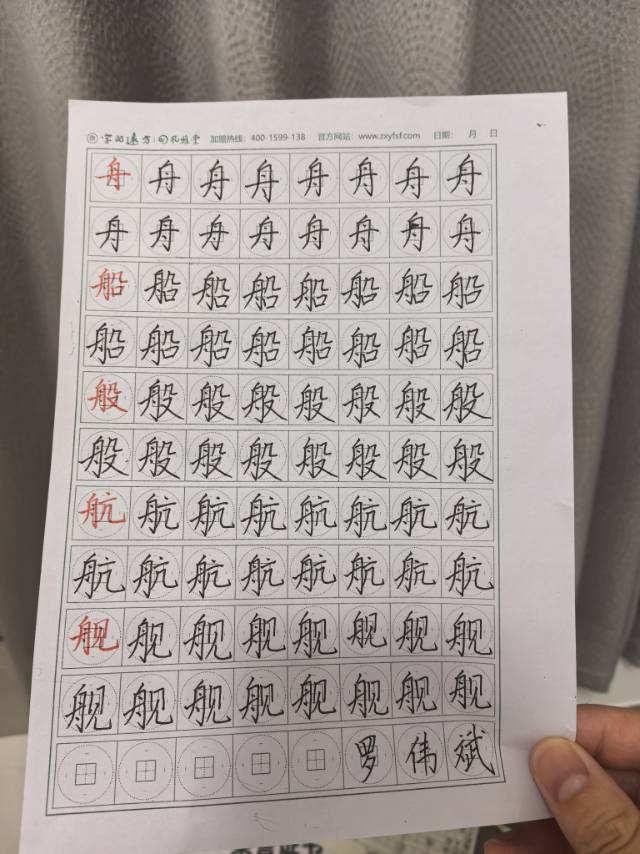 字的远方 孔祖堂 加盟热线：400-1599-138 官方网站：www.zxyfsf.com 日期： 月 日
舟舟舟舟舟舟舟舟
舟舟舟舟舟舟舟舟
船船船船船船船船
船船船船船船船船
般般般般般般般般
般般般般般般般般
航航航航航航航航
航航航航航航航航
舰舰舰舰舰舰舰舰
舰舰舰舰舰舰舰舰
罗伟斌